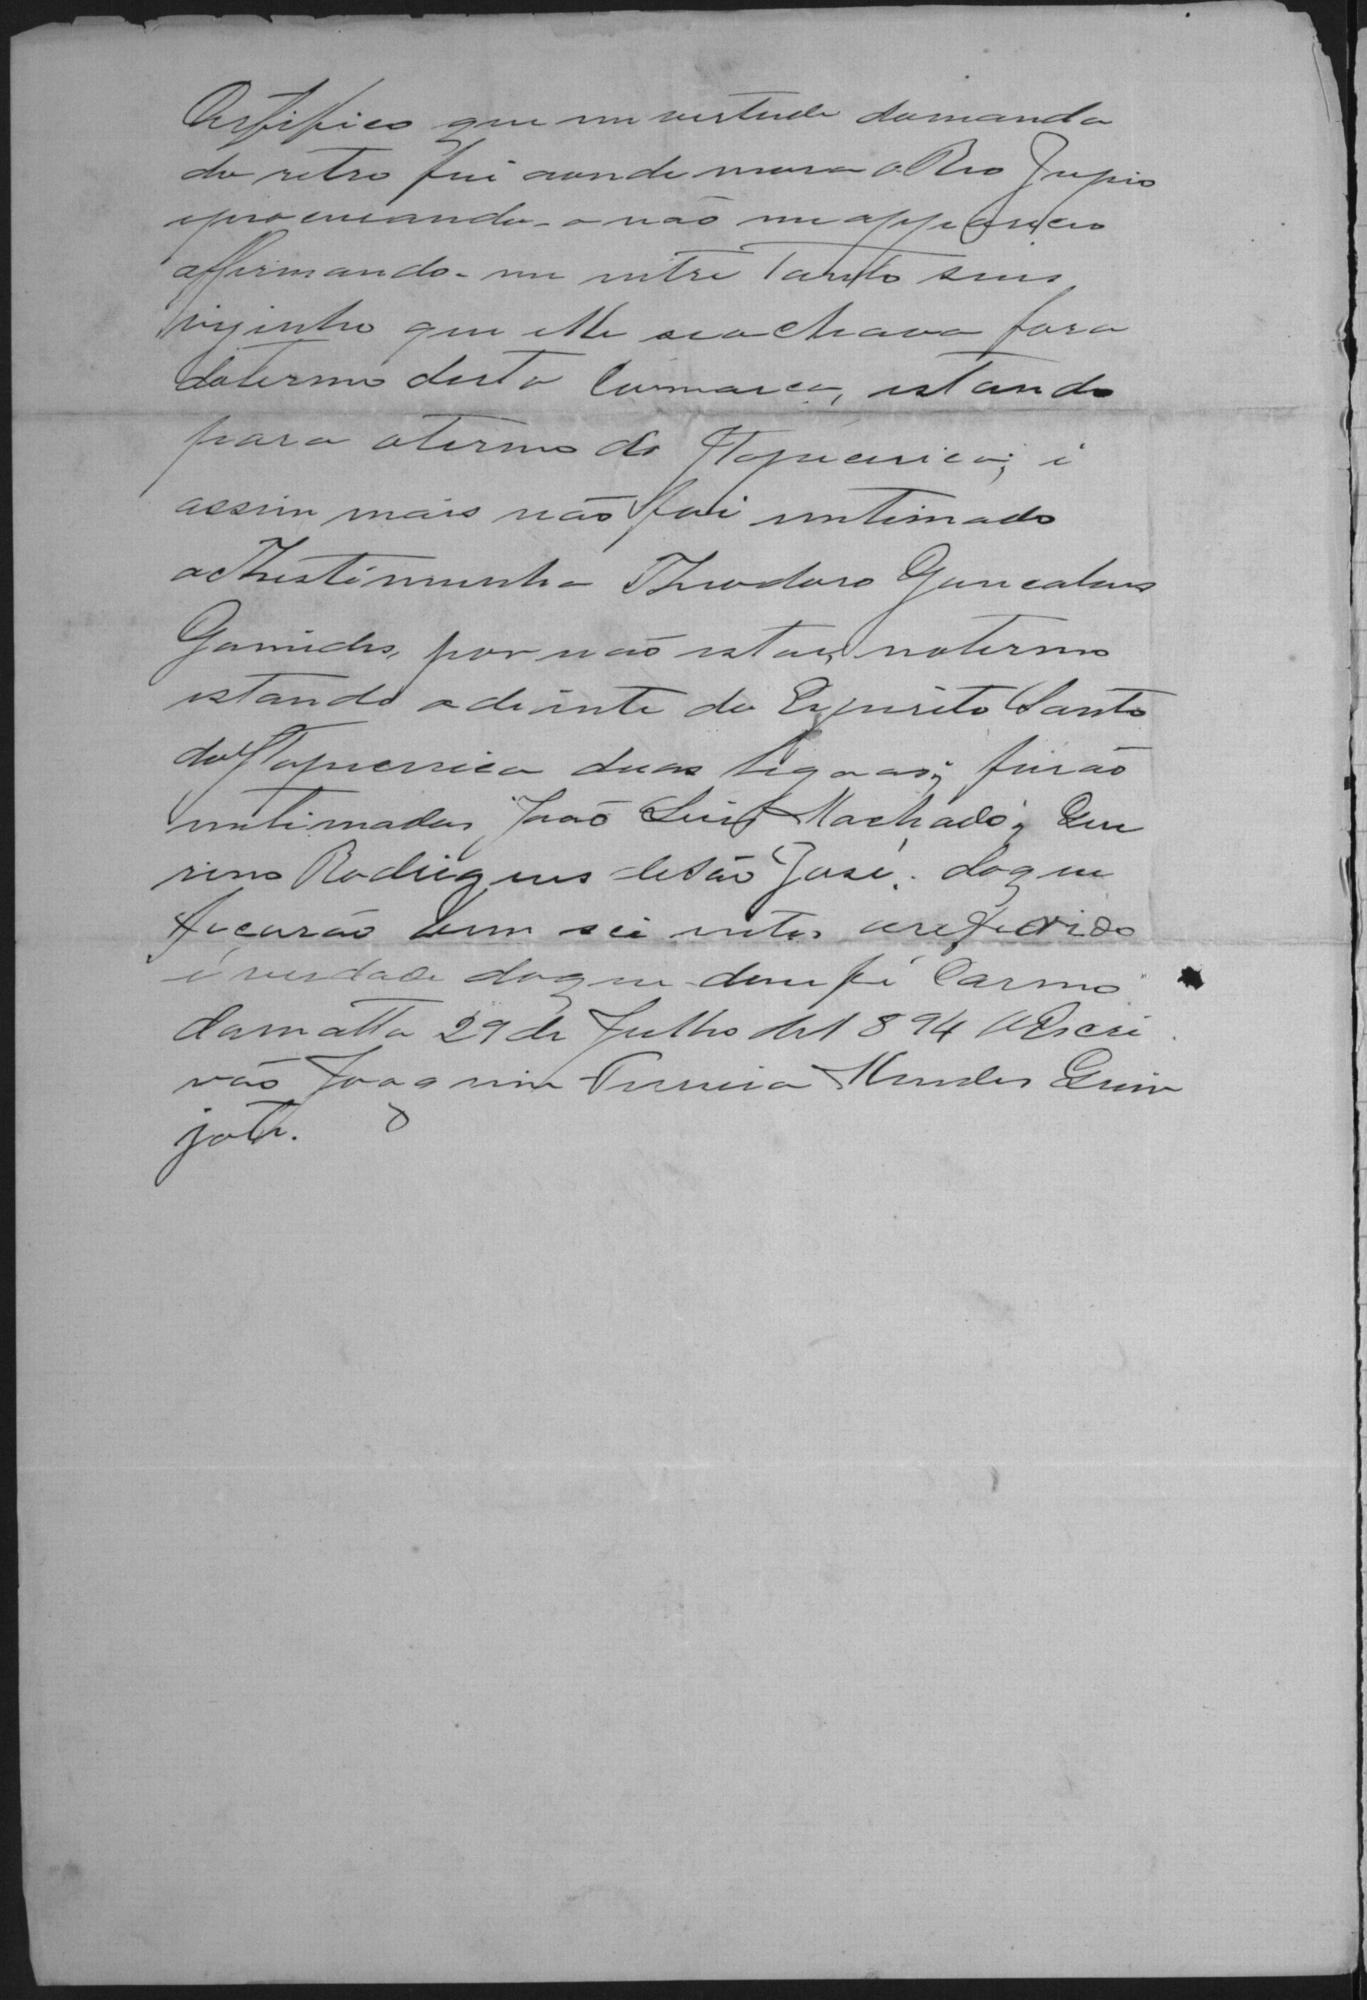 Certifico que em vertude domanda
do retro fui aonde mora o Reo
eprocurando-o não me appareceu
affirmando-me entre tanto seus
vizinho que elle seachava fora
dotermo desta Comarca, estando
para otermo de Itapecerica; e
assim mais não foi intimado
a thestimunha Theodoro Goncalves
por não estar notermo
estando adiante do Espirito Santo
da Itapecerica duas legoas; forão
intimadas João Luis Machado; Qui
rino Rodrigues deSão José. doque
ficarão bem sci entes oreferido
é verdade doque dou fé Carmo
damatta 29 de Julho de 1894 OEscri
vão Joaquim Ferreira Mendes